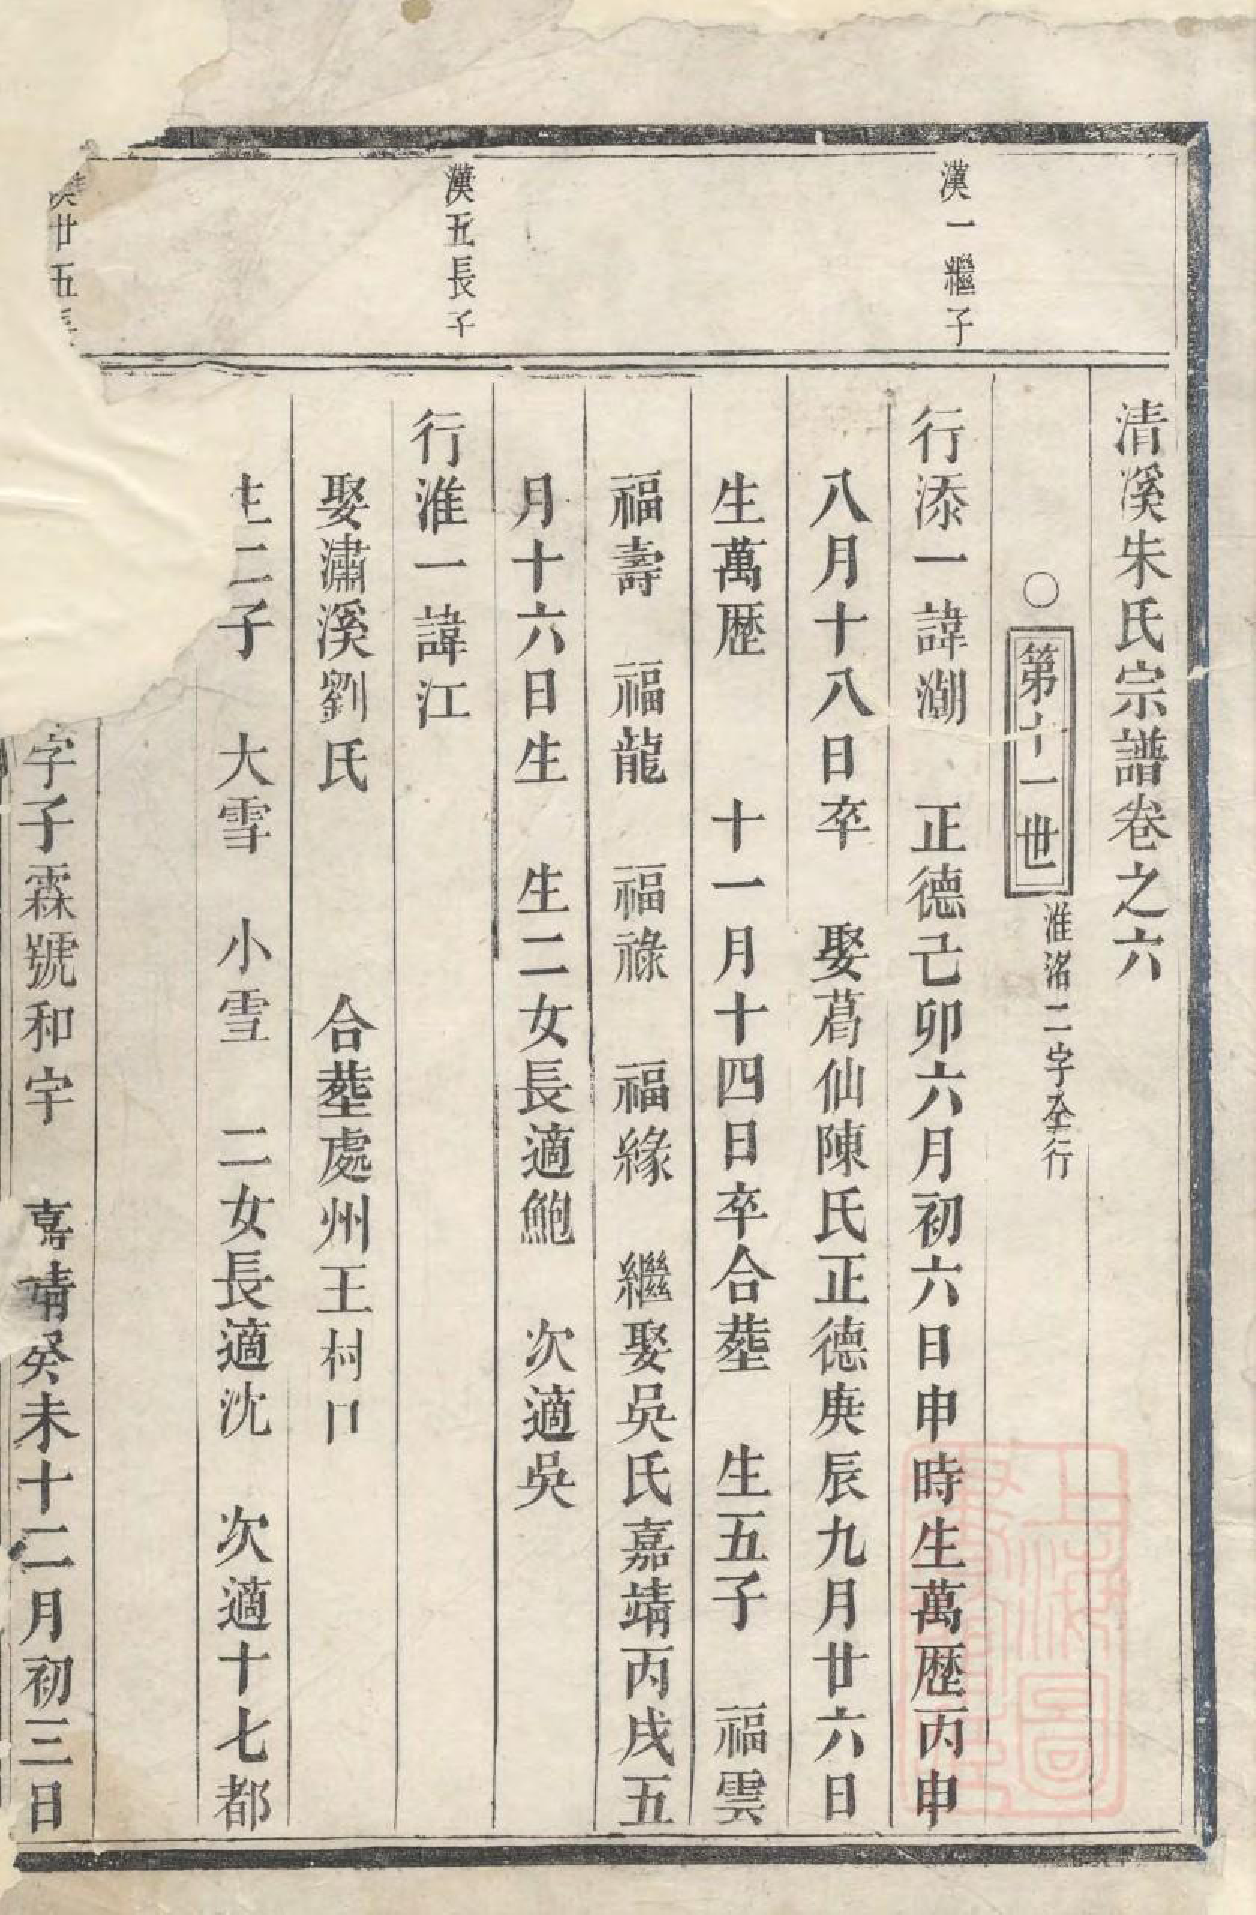 清溪朱氏宗譜卷之六
○第十一世 淮洺二字仝行
漢一繼子
行添一諱潮 正德己卯六月初六日申時生萬歷丙申
八月十八日卒 娶葛仙陳氏正德庚辰九月廿六日
生萬歷 十一月十四日卒合塟 生五子 福雲
福壽 福龍 福祿 福緣 繼娶吳氏嘉靖丙戌五
月十六日生 生二女長適鮑 次適吳
漢五長子
行淮一諱江
娶潚溪劉氏 合塟處州王村口
生二子 大雪 小雪 二女長適沈 次適十七都
廿五
字子霖號和宇 嘉靖癸未十二月初三日